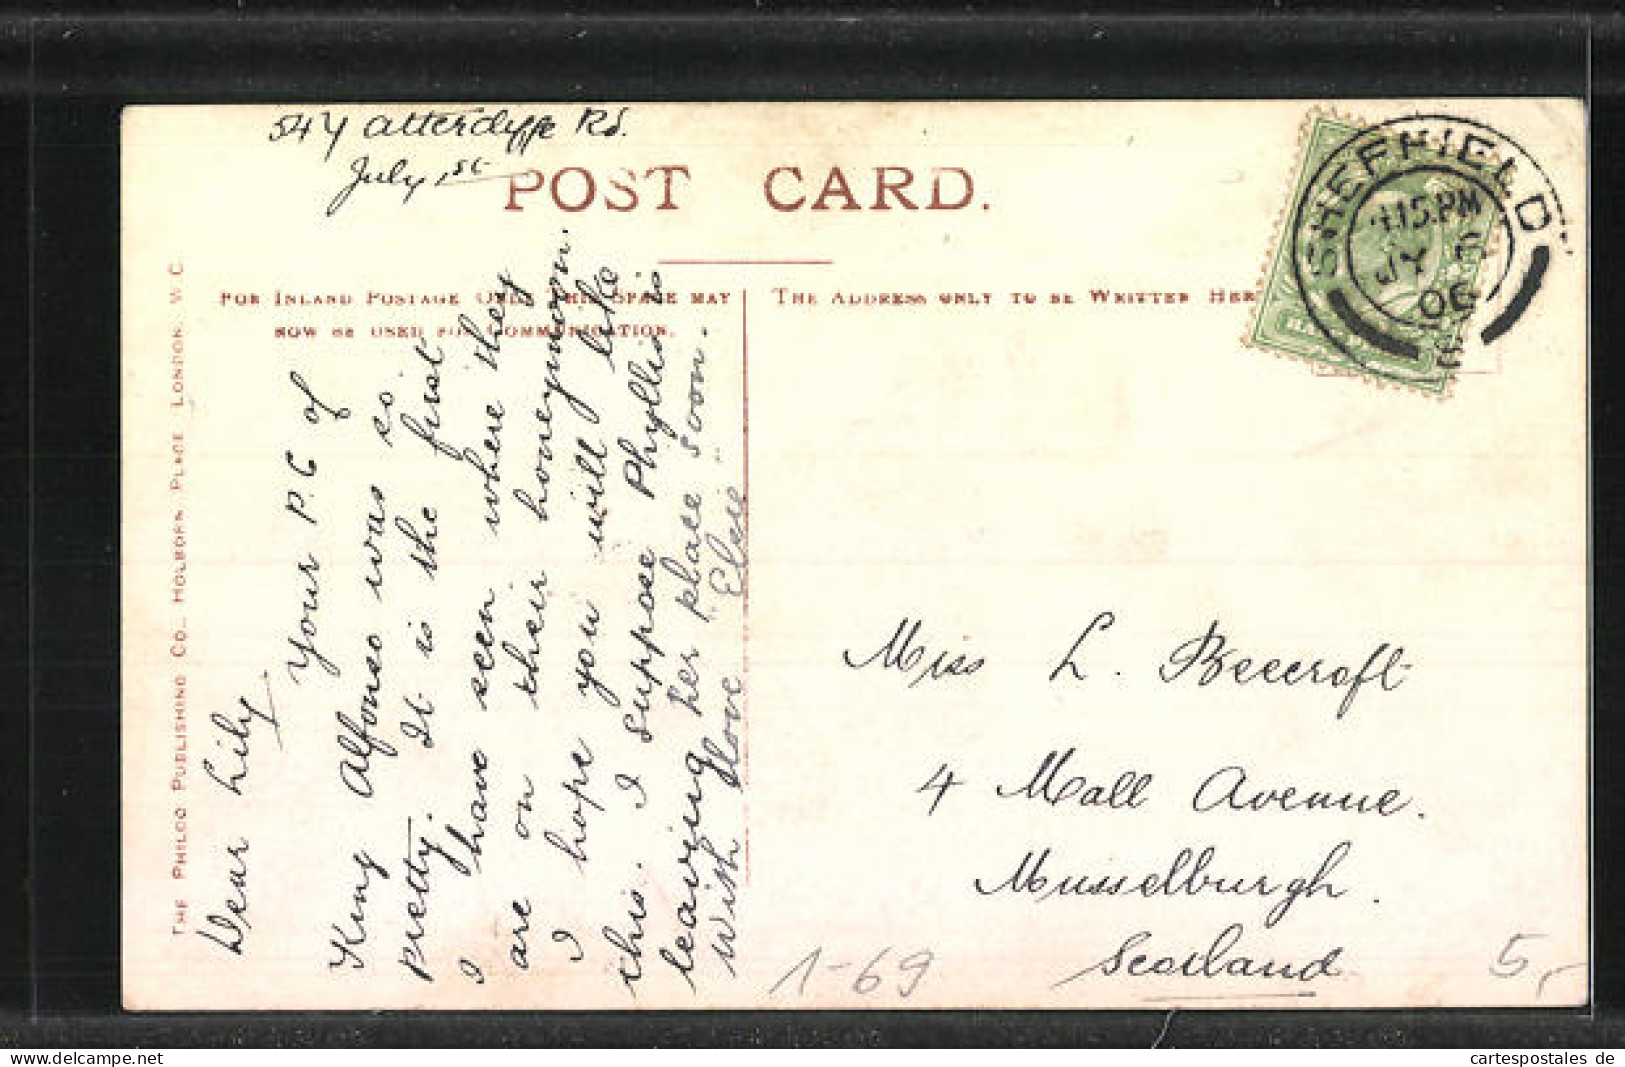 547 Attercliffe Rd.
July 1st
POST CARD.
FOR INLAND POSTAGE ONLY THIS SPACE MAY
NOW BE USED FOR COMMUNICATION.
THE ADDRESS ONLY TO BE WRITTEN HER
SHEFFIELD
15 PM
JY
06
THE PHILCO PUBLISHING CO., HOLBORN PLACE LONDON. W.C.
Dear Lily.
Your P.C of
King Alfonso was so
pretty. It is the first
I have seen where they
are on their honeymoon.
I hope you will like
this. I suppose Phyllis is
leaving her place soon.
With love Elsie
Miss L. Beecroft
4 Mall Avenue.
Musselburgh.
Scotland
1-69
5,-
cartespostales de